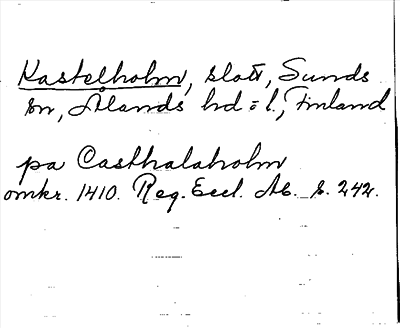 Kastelholm, slott, Sunds
sn, Ålands hd o l., Finland
pa Casthalaholm
omkr. 1410. Reg. Eccl. Ab. s. 242.